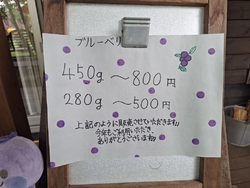 ブルーベリ
450g 〜800円
280g 〜500円
上記のように販売させていただきます!!
今年もご利用いただき
ありがとうございます